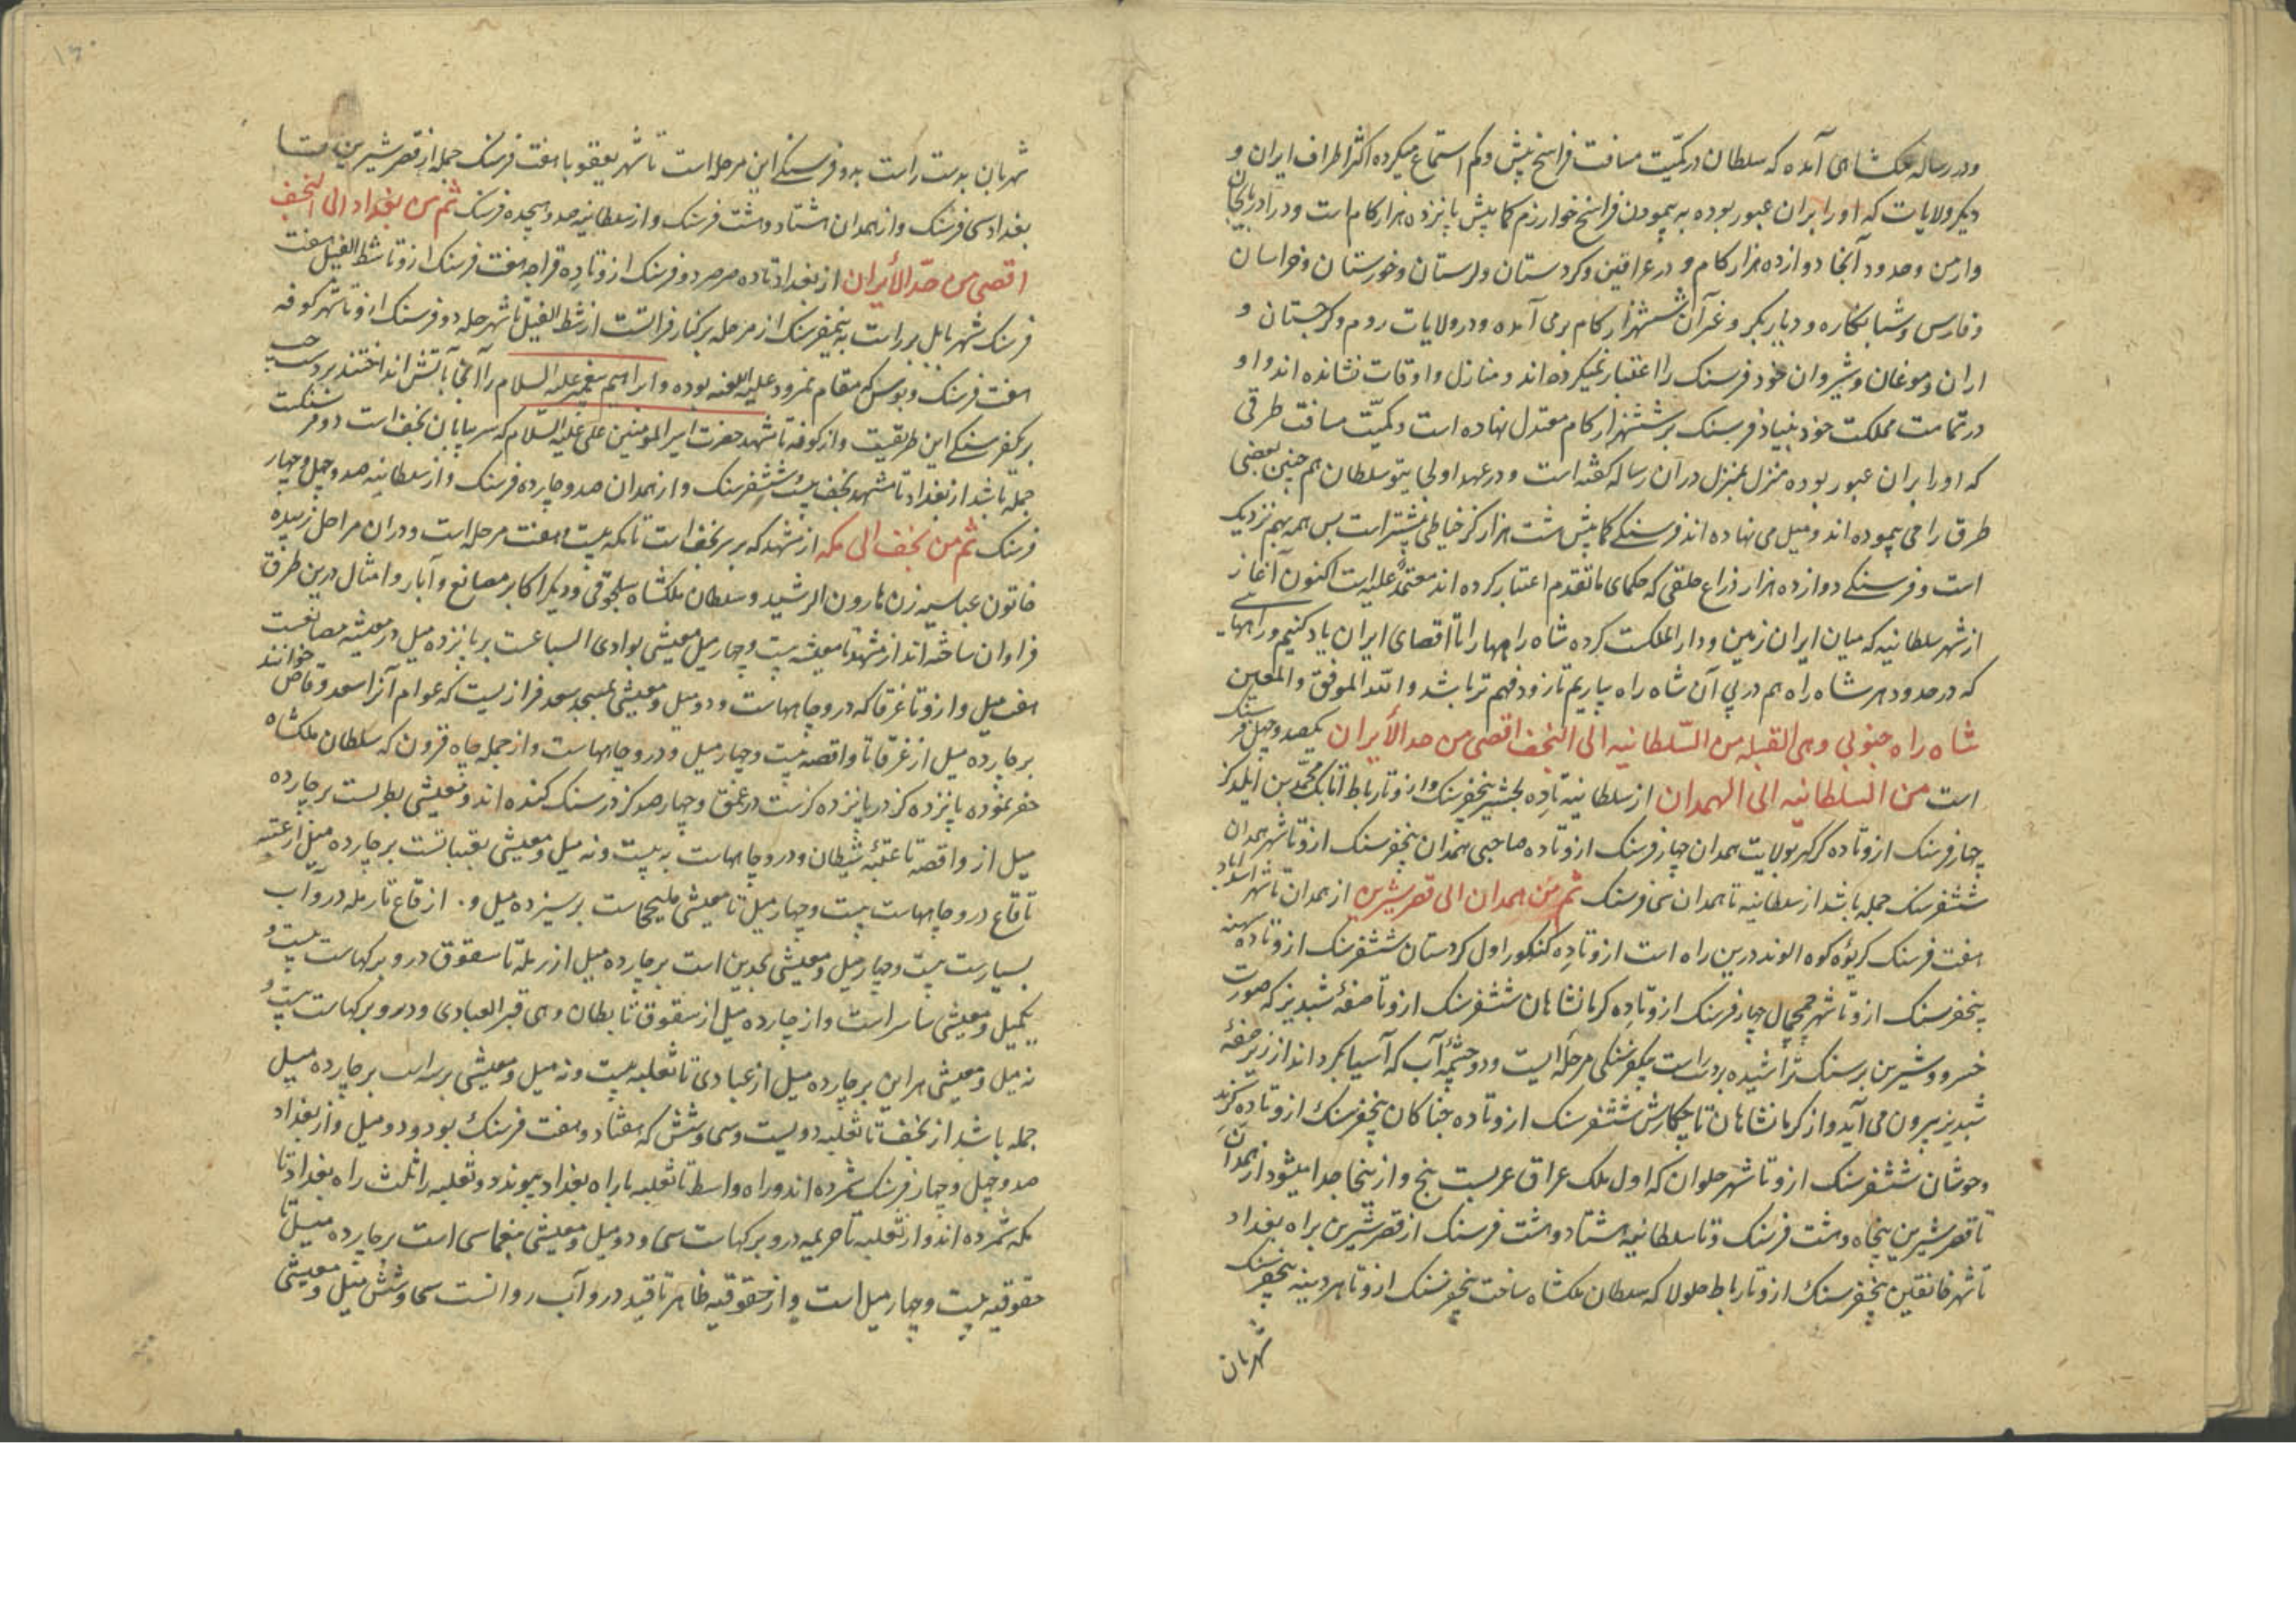 ودر رساله ملکشاهی آمده که سلطان در کمیّت مسافت فراسخ بیش وکم استماع میکرده اکثر اطراف ایران و
دیکر ولایات که او را بران عبور بوده به پیمودن فراسخ خوارزم کمابیش پانزده هزار کام است ودر آذربایجان
وارمن وحدود آنجا دوازده هزار کام و در عراقین وکردستان ولرستان وخورستان وخراسان
وفارس وشبانکاره و دیاربکر وغیر آن ششهزار کام بر می آمده ودر ولایات روم وکرجستان و
اران وموغان وشیروان خود فرسنک را اعتبار نمیکرده اند ومنازل واوقات نشانده اند واو
در تمامت مملکت خود بنیاد فرسنک بر ششهزار کام معتدل نهاده است وکمیّت مسافت طرقی
که او را بران عبور بوده منزل بمنزل در آن رساله کفته است ودر عهد اولجایتو سلطان هم چنین بعضی
طرق را می پیموده اند ومیل می نهاده اند فرسنکی کمابیش هشت هزار کز خیاطی بیشتر است پس همه بهم نزدیک
است وفرسنکی دوازده هزار ذراع خلقی که حکمای ما تقدم اعتبار کرده اند معتمدٌ علیه است اکنون آغاز
از شهر سلطانیه که میان ایران زمین ودار الملکست کرده شاه راهها را تا اقصای ایران یاد کنیم وراهها
که در حدود هر شاه راه هم در پی آن شاه راه بیاریم تا زود فهم تر باشد والله الموفق والمعین
شاه راه جنوبی وهی القبله من السّلطانیه الی النجف اقصی من حد الأیران یکصد وچهل فرسنک
است من السلطانیه الی الهمدان از سلطانیه تا ده بجشیر پنجفرسنک وازو تا رباط اتابک محمّد بن ایلدکز
چهار فرسنک ازو تا ده کرکهر بولایت همدان چهار فرسنک ازو تا ده صاحبی همدان پنجفرسنک ازو تا شهر همدان
ششفرسنک جمله باشد از سلطانیه تا همدان سی فرسنک ثم من همدان الی قصر شیرین از همدان تا شهر اسداباد
هفت فرسنک کریوهٔ کوه الوند درین راه است ازو تا ده کنکور اول کردستان ششفرسنک ازو تا ده
پنجفرسنک ازو تا شهر چمچمال چهار فرسنک ازو تا ده کرمانشاهان ششفرسنک ازو تا صفهٔ شبدیز که صورت
خسرو وشیرین بر سنک تراشیده بردست راست بیکفرسنکی مرحله ایست ودو چشمه آب که آسیا بکرداند از زیر صفهٔ
شبدیز بیرون می آید واز کرمانشاهان تا چکارش ششفرسنک ازو تا ده جناکان پنجفرسنک ازو تا ده کرند
وخوشان ششفرسنک ازو تا شهر حلوان که اول ملک عراق عربست پنج واز بنجا جدا میشود از همدان
تا قصر شیرین پنجاه وهشت فرسنک وتا سلطانیه هشتاد وهشت فرسنک از قصر شیرین براه بغداد
تا شهر خانقین پنجفرسنک ازو تا رباط جلولا که سلطان ملکشاه ساخت پنجفرسنک ازو تا هردینه پنجفرسنک
شهربان
شهربان بدست راست بدو فرسنکی این مرحله است تا شهر بعقوبا هفت فرسنک جمله از قصر شیرین تا
بغداد سی فرسنک واز همدان هشتاد وهشت فرسنک واز سلطانیه صد وهیجده فرسنک ثم من بغداد الی النجف
اقصی من حدّ الأیران از بغداد تا ده صرصر دو فرسنک ازو تا ده فراجه هفت فرسنک ازو تا شط النیل هفت
فرسنک شهر بابل بر راست به نیمفرسنک از مرحله بر کنار فراتست از شط النیل تا شهر حله دو فرسنک ازو تا شهر کوفه
هفت فرسنک وبوس که مقام نمرود علیه اللعنه بوده وابراهیم پیغمبر علیه السلام را آنجا بآتش انداختند بردست
بر یکفرسنکی این طریقست واز کوفه تا مشهد حضرت امیر المؤمنین علی علیه السّلام که سر بیابان نجف است دو فرسنکست
جمله باشد از بغداد تا مشهد نجف بیست وششفرسنک واز همدان صد وچارده فرسنک واز سلطانیه صد وچهل وچهار
فرسنک ثم من نجف الی مکه از مشهد که بر بر نجف است تا مکه بیست وهفت مرحله است ودران مراحل زبیده
خاتون عباسیه زن هارون الرشید وسلطان ملکشاه سلجوقی ودیکر اکابر مصانع وآبار وامثال درین طرق
فراوان ساخته اند از مشهد تا مغیثه بیست وچهار میل معیشی بوادی السباعت بر پانزده میل در مغیثه مصانعست
هفت میل وازو تا غرقا که درو چاههاست ودو میل ومعیشی بمسجد سعد فرازیست که عوام آنرا سعد وقاص خوانند
بر چارده میل از غرقا تا واقصه بیست وچهار میل ودرو چاههاست واز جمله چاه قرون که سلطان ملکشاه
حفر نموده پانزده کز در پانزده کزست در عمق وچهار صد کز در سنک کنده اند ومعیشی بطرلست بر چارده
میل از واقصه تا عقبهٔ شیطان ودرو چاههاست به بیست ونه میل ومعیشی بقبیاتست بر چارده میل از عقبه
تا قاع درو چاههاست بیست وچهار میل تا معیشی جلیحاست بر سیزده میل و. از قاع تا رمله درو آب
بسیارست بیست وچهار میل ومعیشی نجدین است بر چارده میل از رمله تا سقوق درو برکهاست بیست و
یکمیل ومعیشی ساسر است واز چارده میل از سقوق تا بطان وهی قبر العبادی ودرو برکهاست بیست و
نه میل ومعیشی هراین بر چارده میل از عبادی تا ثعلبیه بیست ونه میل ومعیشی بر چارده میل
جمله باشد از نجف تا ثعلبیه دویست وسی وشش که هفتاد وهفت فرسنک بود ودو میل واز بغداد
صد وچهل وچهار فرسنک شمرده اند وراه واسط تا ثعلبیه با راه بغداد پیوندد وثعلبیه را ثلث راه بغداد تا
مکه شمرده اند واز ثعلبیه تا خزیمیه درو برکهاست سی ودو میل ومعیشی بنعماسی است بر چارده میل تا
حقوقیه بیست وچهار میل است واز حقوقیه ظاهر تا فید درو آب روانست سی وشش میل ومعیشی